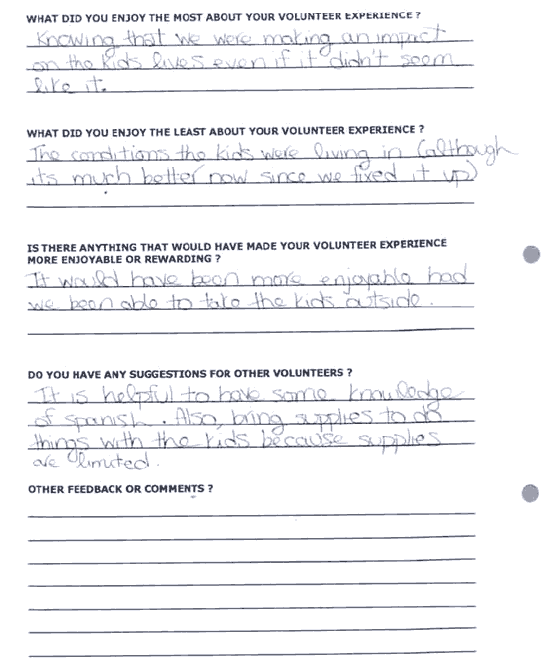 WHAT DID YOU ENJOY THE MOST ABOUT YOUR VOLUNTEER EXPERIENCE ?
Knowing that we were making an impact
on the kids lives even if it didn't seem
like it.
WHAT DID YOU ENJOY THE LEAST ABOUT YOUR VOLUNTEER EXPERIENCE ?
The conditions the kids were living in (although
its much better now since we fixed it up)
IS THERE ANYTHING THAT WOULD HAVE MADE YOUR VOLUNTEER EXPERIENCE
MORE ENJOYABLE OR REWARDING ?
It would have been more enjoyable had
we been able to take the kids outside.
DO YOU HAVE ANY SUGGESTIONS FOR OTHER VOLUNTEERS ?
It is helpful to have some knowledge
of spanish. Also, bring supplies to do
things with the kids because supplies
are limited.
OTHER FEEDBACK OR COMMENTS ?